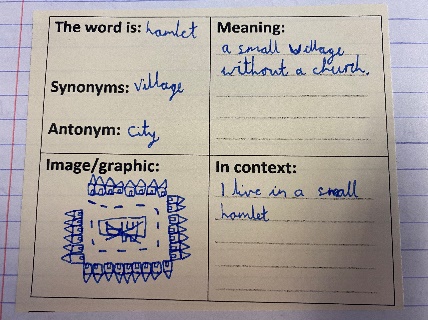 The word is: hamlet
Synonyms: village
Antonym: City
Meaning:
a small village
without a church.
Image/graphic:
In context:
I live in a small
hamlet